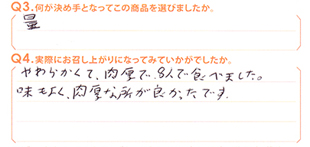 Q3.何が決め手となってこの商品を選びましたか。
量
Q4.実際にお召し上がりになってみていかがでしたか。
やわらかくて、肉厚で、8人で食べました。
味もよく、肉厚な所が良かったです。